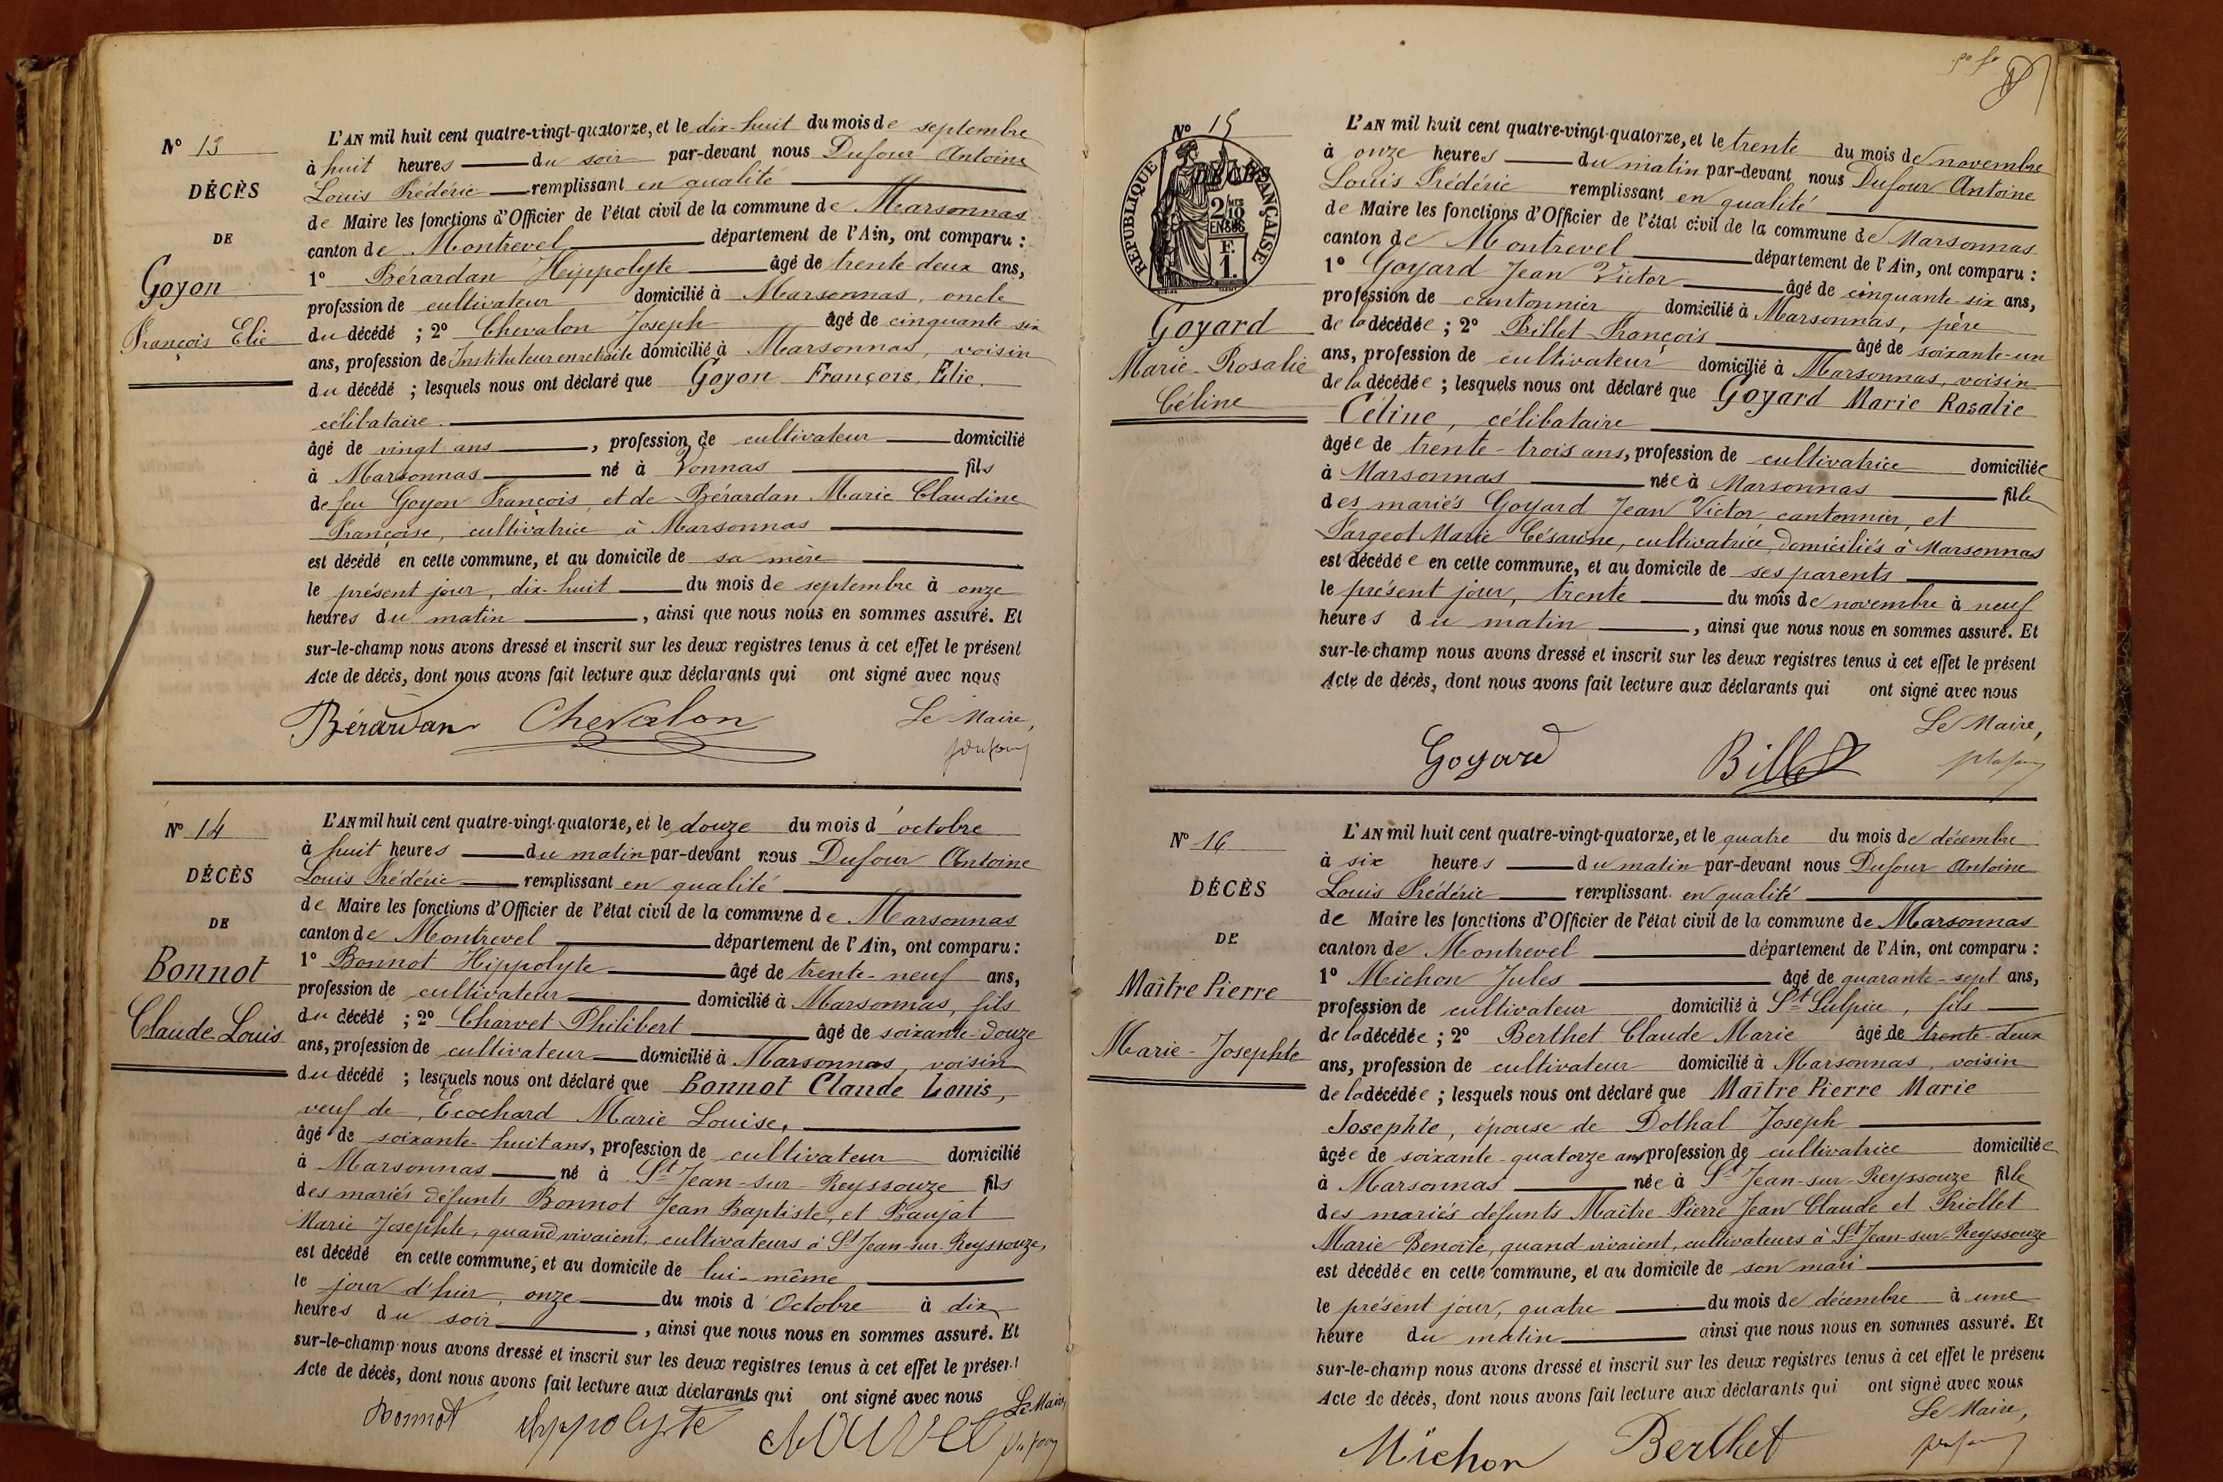 N° 13
DÉCÈS
DE
Goyon
François Elie
L'AN mil huit cent quatre-vingt-quatorze, et le dix-huit du mois de septembre
à huit heures du soir par-devant nous Dufour Antoine
Louis Frédéric remplissant en qualité
de Maire les fonctions d'Officier de l'état civil de la commune de Marsonnas
canton de Montrevel département de l'Ain, ont comparu :
1° Bérardan Hippolyte âgé de trente deux ans,
profession de cultivateur domicilié à Marsonnas, oncle
du décédé ; 2° Chevalon Joseph âgé de cinquante six
ans, profession de Instituteur en retraite domicilié à Marsonnas, voisin
du décédé ; lesquels nous ont déclaré que Goyon François, Elie,
célibataire.
âgé de vingt ans, profession de cultivateur domicilié
à Marsonnas né à Vonnas fils
de feu Goyon François, et de Bérardan Marie Claudine
Françoise, cultivatrice à Marsonnas
est décédé en cette commune, et au domicile de sa mère
le présent jour, dix-huit du mois de septembre à onze
heures du matin, ainsi que nous nous en sommes assuré. Et
sur-le-champ nous avons dressé et inscrit sur les deux registres tenus à cet effet le présent
Acte de décès, dont nous avons fait lecture aux déclarants qui ont signé avec nous
Bérardan Chevalon Le Maire,
N° 14
DÉCÈS
DE
Bonnot
Claude-Louis
L'AN mil huit cent quatre-vingt-quatorze, et le douze du mois d'octobre
à huit heures du matin par-devant nous Dufour Antoine
Louis Frédéric remplissant en qualité
de Maire les fonctions d'Officier de l'état civil de la commune de Marsonnas
canton de Montrevel département de l'Ain, ont comparu :
1° Bonnot Hippolyte âgé de trente-neuf ans,
profession de cultivateur domicilié à Marsonnas, fils
du décédé ; 2° Charvet Philibert âgé de soixante-douze
ans, profession de cultivateur domicilié à Marsonnas, voisin
du décédé ; lesquels nous ont déclaré que Bonnot Claude Louis,
veuf de Ecochard Marie Louise,
âgé de soixante-huit ans, profession de cultivateur domicilié
à Marsonnas né à St Jean-sur-Reyssouze fils
des mariés défunts Bonnot Jean Baptiste, et Baujat
Marie Josephte, quand vivaient, cultivateurs à St Jean-sur-Reyssouze,
est décédé en cette commune, et au domicile de lui-même,
le jour d'hier, onze du mois d'Octobre à dix
heures du soir, ainsi que nous nous en sommes assuré. Et
sur-le-champ nous avons dressé et inscrit sur les deux registres tenus à cet effet le présent
Acte de décès, dont nous avons fait lecture aux déclarants qui ont signé avec nous
Le Maire,
Bonnot hyppolyte
N° 15
DÉCÈS
RÉPUBLIQUE FRANÇAISE
2/10 EN SUS
F. 1.
Goyard
Marie-Rosalie
Céline
L'AN mil huit cent quatre-vingt-quatorze, et le trente du mois de novembre
à onze heures du matin par-devant nous Dufour Antoine
Louis Frédéric remplissant en qualité
de Maire les fonctions d'Officier de l'état civil de la commune de Marsonnas
canton de Montrevel département de l'Ain, ont comparu :
1° Goyard Jean Victor âgé de cinquante-six ans,
profession de cantonnier domicilié à Marsonnas, père
de la décédée ; 2° Billet François âgé de soixante-un
ans, profession de cultivateur domicilié à Marsonnas, voisin
de la décédée ; lesquels nous ont déclaré que Goyard Marie Rosalie
Céline, célibataire
âgée de trente-trois ans, profession de cultivatrice domiciliée
à Marsonnas née à Marsonnas fille
des mariés Goyard Jean Victor, cantonnier, et
Fargeot Marie Césarine, cultivatrice, domiciliés à Marsonnas
est décédée en cette commune, et au domicile de ses parents
le présent jour, trente du mois de novembre à neuf
heures du matin, ainsi que nous nous en sommes assuré. Et
sur-le-champ nous avons dressé et inscrit sur les deux registres tenus à cet effet le présent
Acte de décès, dont nous avons fait lecture aux déclarants qui ont signé avec nous
Le Maire,
Goyard Billet
N° 16
DÉCÈS
DE
Maître Pierre
Marie-Josephte
L'AN mil huit cent quatre-vingt-quatorze, et le quatre du mois de décembre
à six heures du matin par-devant nous Dufour Antoine
Louis Frédéric remplissant en qualité
de Maire les fonctions d'Officier de l'état civil de la commune de Marsonnas
canton de Montrevel département de l'Ain, ont comparu :
1° Michon Jules âgé de quarante-sept ans,
profession de cultivateur domicilié à St Sulpice, fils
de la décédée ; 2° Berthet Claude Marie âgé de trente-deux
ans, profession de cultivateur domicilié à Marsonnas, voisin
de la décédée ; lesquels nous ont déclaré que Maître Pierre Marie
Josephte, épouse de Dothal Joseph
âgée de soixante-quatorze ans profession de cultivatrice domiciliée
à Marsonnas née à St Jean-sur-Reyssouze fille
des mariés défunts Maître-Pierre Jean Claude et Priollet
Marie Benoite, quand vivaient, cultivateurs à St Jean-sur-Reyssouze
est décédée en cette commune, et au domicile de son mari
le présent jour, quatre du mois de décembre à une
heure du matin ainsi que nous nous en sommes assuré. Et
sur-le-champ nous avons dressé et inscrit sur les deux registres tenus à cet effet le présent
Acte de décès, dont nous avons fait lecture aux déclarants qui ont signé avec nous
Le Maire,
Michon Berthet